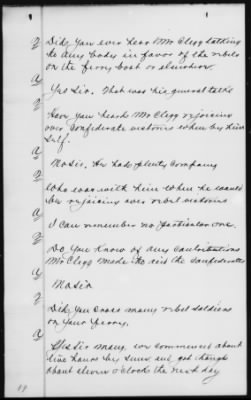 Q Did you ever hear Mr Clegg talking
to any body in favor of the rebels
on the ferry boat or elsewhere
A Yes Sir. That was his general talk
Q Have you heard Mr Clegg rejoicing
over Confederate victories when by him
self.
A No Sir. He had plenty Company
Q Who was with him when he would
be rejoicing over rebel victories
A I can remember no particular one.
Q Do you know of any contributions
Mr Clegg made to aid the Confederates
A No Sir
Q Did you cross many rebel soldiers
on your ferry.
A Yes Sir many we commenced about
hours by sun and got through
about eleven o'clock the next day